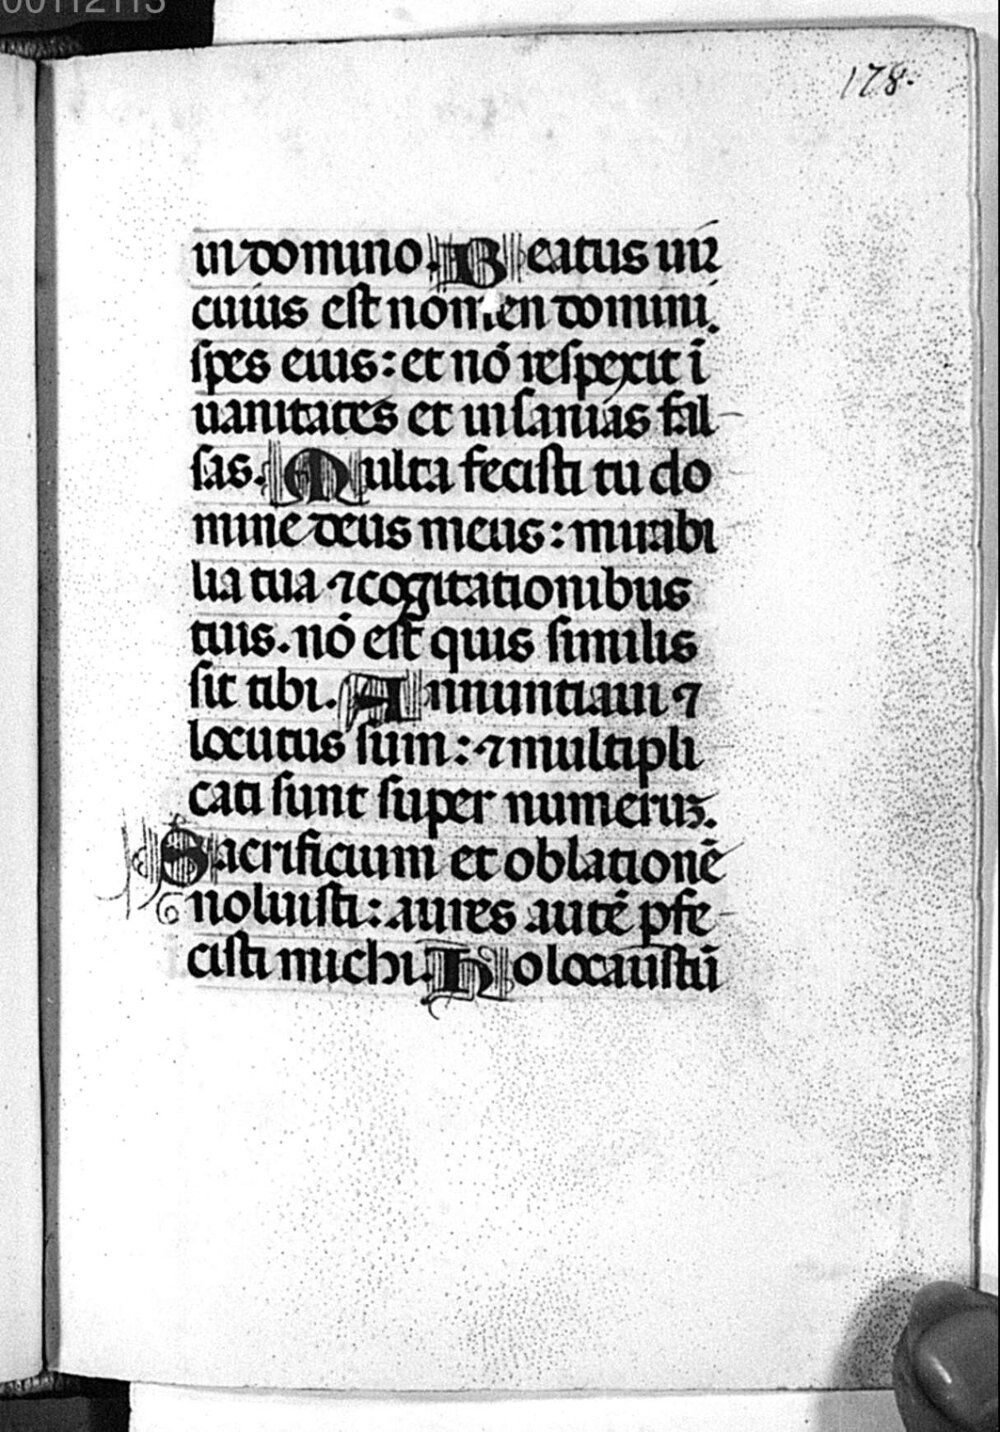 178.
in domino. Beatus uir
cuius est nomen domini.
spes eius: et nō respexit ī
uanitates et insanias fal
sas. Multa fecisti tu do
mine deus meus: mirabi
lia tua ⁊ cogitationibus
tuis. nō est quis similis
sit tibi. Annuntiaui ⁊
locutus sum: ⁊ multipli
cati sunt super numerūꝫ.
Sacrificium et oblationē
noluisti: aures autē pfe
cisti michi. Holocaustū